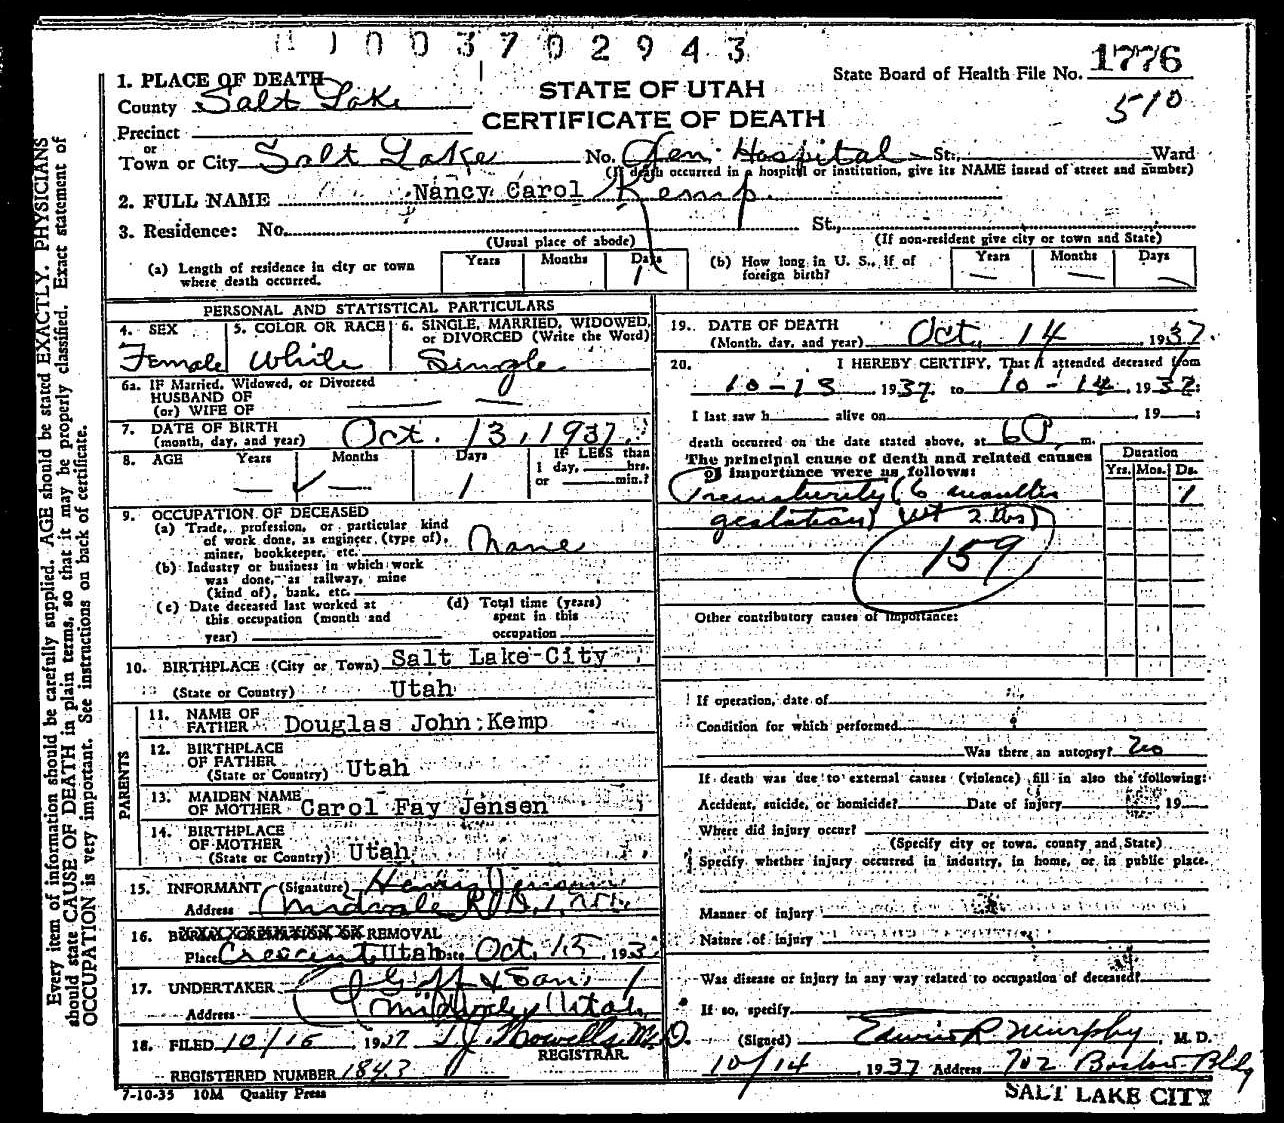 003702943
1776
State Board of Health File No.
510
STATE OF UTAH
CERTIFICATE OF DEATH
1. PLACE OF DEATH
County Salt Lake
Precinct
or
Town or City Salt Lake No. Gen. Hospital St., Ward
(If death occurred in a hospital or institution, give its NAME insead of street and number)
2. FULL NAME Nancy Carol Kemp
3. Residence: No. St.,
(Usual place of abode) (If non-resident give city or town and State)
(a) Length of residence in city or town where death occurred. Years Months Days 1
(b) How long in U. S., if of foreign birth? Years — Months — Days —
PERSONAL AND STATISTICAL PARTICULARS
4. SEX Female
5. COLOR OR RACE White
6. SINGLE, MARRIED, WIDOWED, or DIVORCED (Write the Word) Single
6a. IF Married, Widowed, or Divorced
HUSBAND OF
(or) WIFE OF
7. DATE OF BIRTH
(month, day, and year) Oct. 13, 1937.
8. AGE Years — Months — Days 1
IF LESS than
1 day, hrs.
or min.?
9. OCCUPATION OF DECEASED
(a) Trade, profession, or particular kind
of work done, as engineer (type of),
miner, bookkeeper, etc. None
(b) Industry or business in which work
was done, as railway, mine
(kind of), bank, etc.
(c) Date deceased last worked at
this occupation (month and
year)
(d) Total time (years)
spent in this
occupation
10. BIRTHPLACE (City or Town) Salt Lake City
(State or Country) Utah
PARENTS
11. NAME OF
FATHER Douglas John Kemp
12. BIRTHPLACE
OF FATHER
(State or Country) Utah
13. MAIDEN NAME
OF MOTHER Carol Fay Jensen
14. BIRTHPLACE
OF MOTHER
(State or Country) Utah
15. INFORMANT (Signature)
Address Midvale R.D. 1
16. BURIAL, CREMATION, OR REMOVAL
Place Crescent, Utah Date Oct. 15, 193
17. UNDERTAKER Goff & Son
Address Midvale, Utah
18. FILED 10/16, 1937 T.J. Howells M.D.
REGISTRAR.
REGISTERED NUMBER 1843
7-10-35 10M Quality Press
19. DATE OF DEATH
(Month, day, and year) Oct. 14, 1937
20. I HEREBY CERTIFY, That I attended deceased from
10-13 1937. to 10-14, 1937:
I last saw h alive on , 19 ;
death occurred on the date stated above, at m.
The principal cause of death and related causes
of importance were as follows:
Duration
Yrs. Mos. Ds.
Prematurity (6 months 1
gestation) (wt 2 lbs)
159
Other contributory causes of importance:
If operation, date of
Condition for which performed
Was there an autopsy? No
If death was due to external causes (violence) fill in also the following:
Accident, suicide, or homicide? Date of injury , 19
Where did injury occur?
(Specify city or town, county and State)
Specify whether injury occurred in industry, in home, or in public place.
Manner of injury
Nature of injury
Was disease or injury in any way related to occupation of deceased?
If so, specify
(Signed) Edwin R. Murphy, M. D.
10/14, 1937 Address 702 Boston Bldg
SALT LAKE CITY
Every item of information should be carefully supplied. AGE should be stated EXACTLY. PHYSICIANS
should state CAUSE OF DEATH in plain terms, so that it may be properly classified. Exact statement of
OCCUPATION is very important. See instructions on back of certificate.